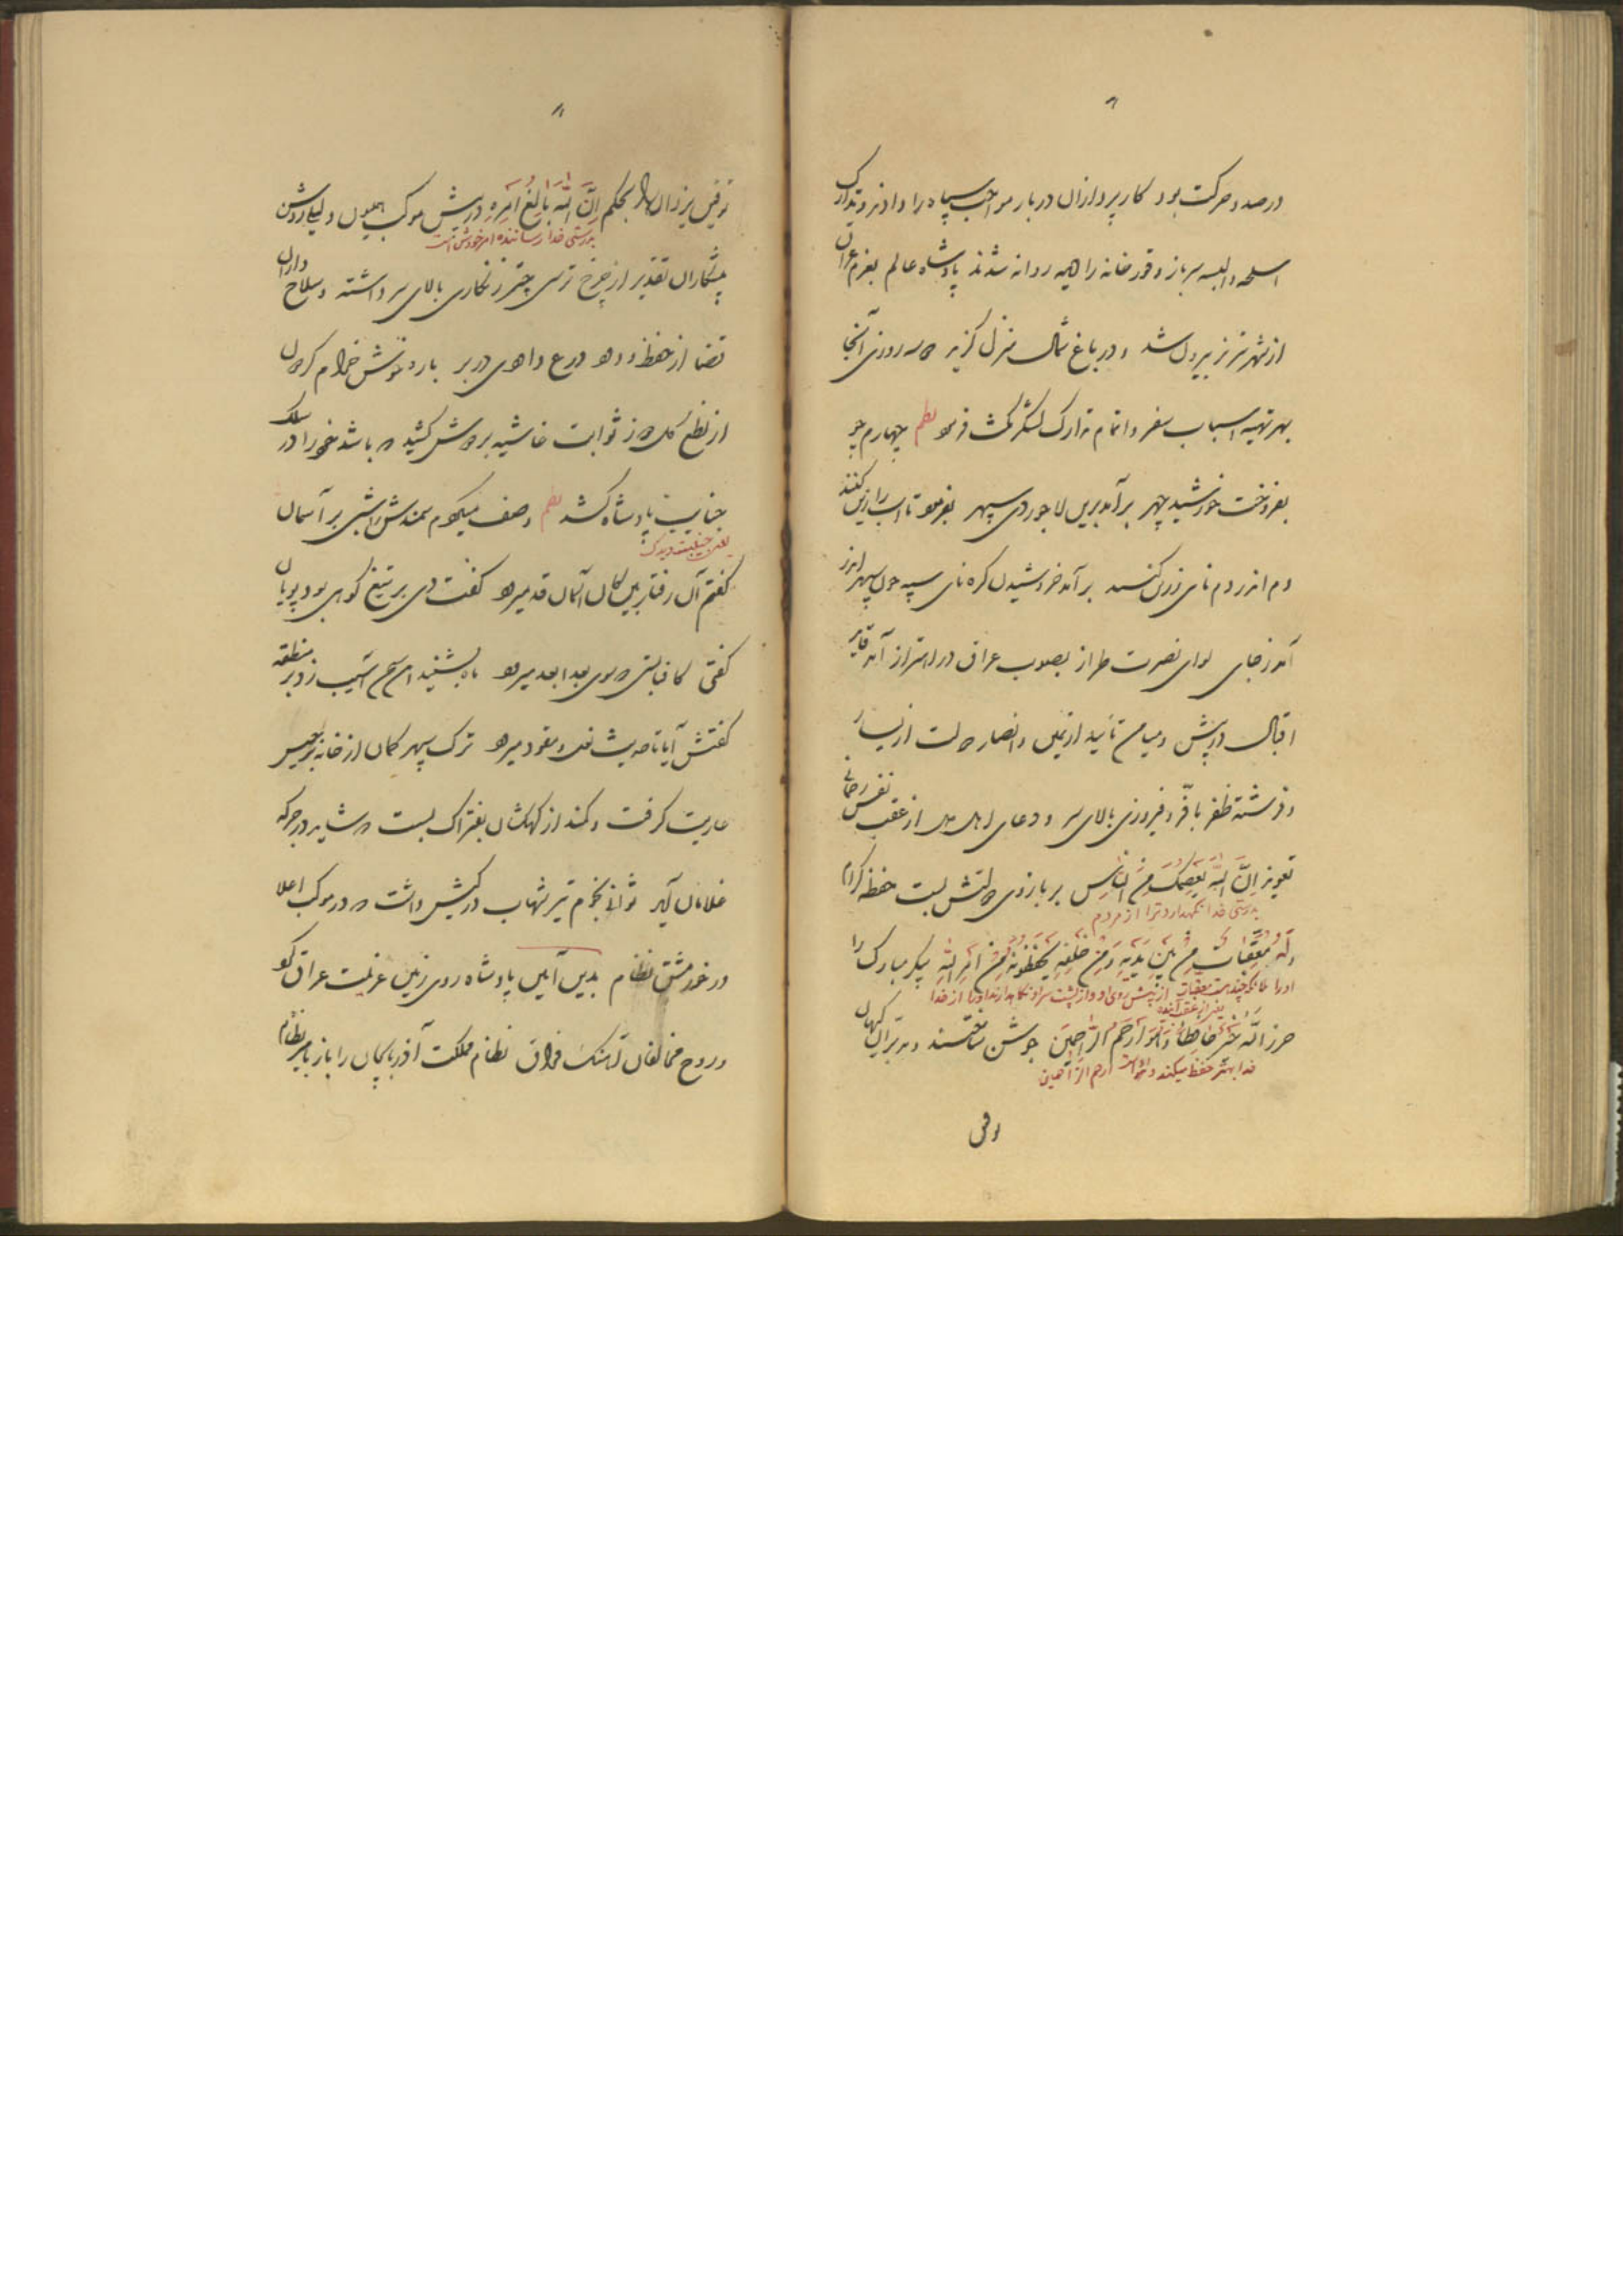 در صدد حرکت بود کارپردازان دربار مواجب سپاه را دادند و تدارک
اسلحه و البسه سرباز و قورخانه را همه روانه شدند پادشاه عالم بعزم عراق
از شهر تبریز بیرون شد و در باغ شمال منزل گزید سه روزی آنجا
بهر تهیه اسباب سفر و اتمام تدارک لشکر مکث فرمود نظم چهارم چو
بفروخت خورشید چهر برآمد برین لاجوردی سپهر بفرمود تا اسب را زین کنند
دم اندر دم نای زرین کنند برآمد خروشیدن کره نای سپه چون سپهر اندر
آمد ز جای لوای نصرت طراز بصوب عراق در اهتزاز آمد قاید
اقبال در پیش و میامن تأیید از یمین و انصار دولت از یسار
و فرشته ظفر با فر و فیروزی بالای سر و دعای از عقب نفس رحمانی
تعویذ اِنَّ اللهَ یَعصِمُکَ مِنَ النّاسِ بر بازوی دولتش بست حفظه کرام
بدرستی خدا نگهدارد ترا از مردم
لَهُ مُعَقِّباتٌ مِن بَینِ یَدَیهِ وَ مِن خَلفِهِ یَحفَظونَهُ مِن اَمرِ اللهِ پیکر مبارک را
او را از پیش روی او و از پشت سر او نگاه میدارند او را از خدا
یعنی از عقب آینده
حرز اللهُ خَیرٌ حافِظاً وَ هُوَ اَرحَمُ الرّاحِمینَ جوشن ساختند و مدبران کیهان
خدا بهتر حفظ میکند و اوست ارحم الراحمین
توفیق
توفیق یزدان بحکم اِنَّ اللهَ بالِغُ اَمرِهِ در پیش موکب همیون و لیلی روشن
بدرستی خدا رساننده امر خودش است
پیشکاران تقدیر از چرخ ترسی چتر زنگاری بالای سر داشته و سلاح داران
قضا از حفظ درع داهی در بر باره خوش خرام گردون
از نطع گلدوز ثوابت غاشیه بر دوش کشید که باشد خود را در سلک
جنایب پادشاه کشد نظم وصف میکردم سمندش را شبی بر آسمان
یعنی جنیبت و یدک
گفتم آن رفتار بین کان آسمان قد میرود گفت دی بر تیغ کوهی بود پویان
گفتی کافتابستی که سوی بعد ابعد میرود ماه بشنید این سخن آسیب زد بر منطقه
گفتش آیا تا حدیث نعل و مقود میرود ترک سپهر کمان از خانه برجیس
عاریت گرفت و کمند از کهکشان بفتراک بست که شاید در جرگه
غلامان آید ثوانی نجوم تیر شهاب در کیش داشت که در موکب اعلا
در خور مشق نظام بدین آیین پادشاه روی زمین عزیمت عراق کرد
و روح مخالفان آهنگ فراق نظام مملکت آذربایجان را باز بامیر نظام